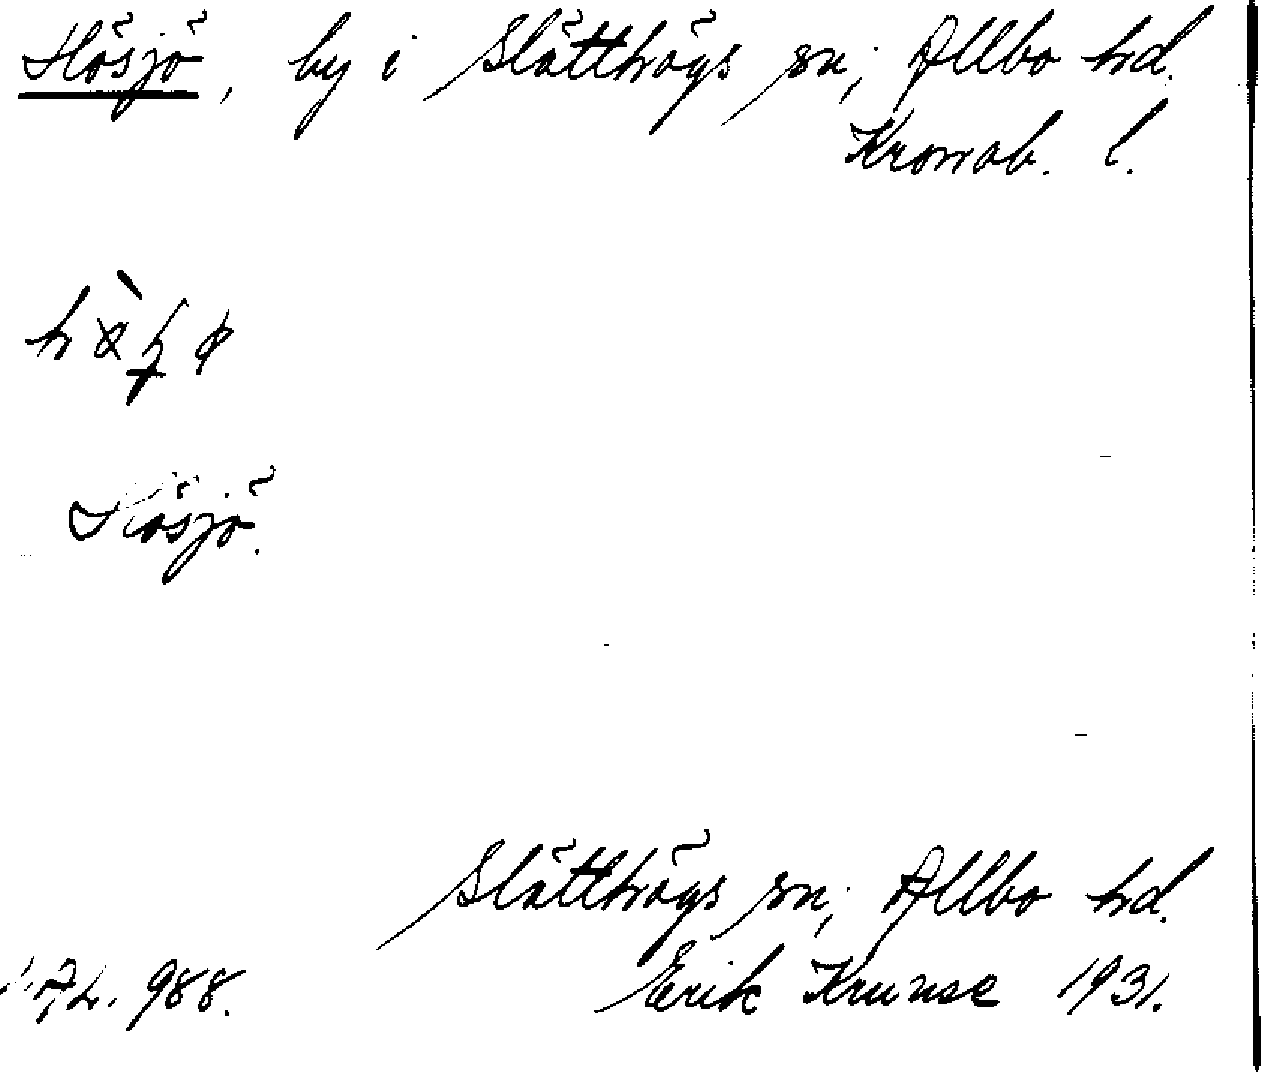 Hösjö, by i Slätthögs sn; Allbo hd.
Kronob. l.
Hösjö.
Slätthögs sn; Allbo hd.
988. Erik Kruuse 1931.